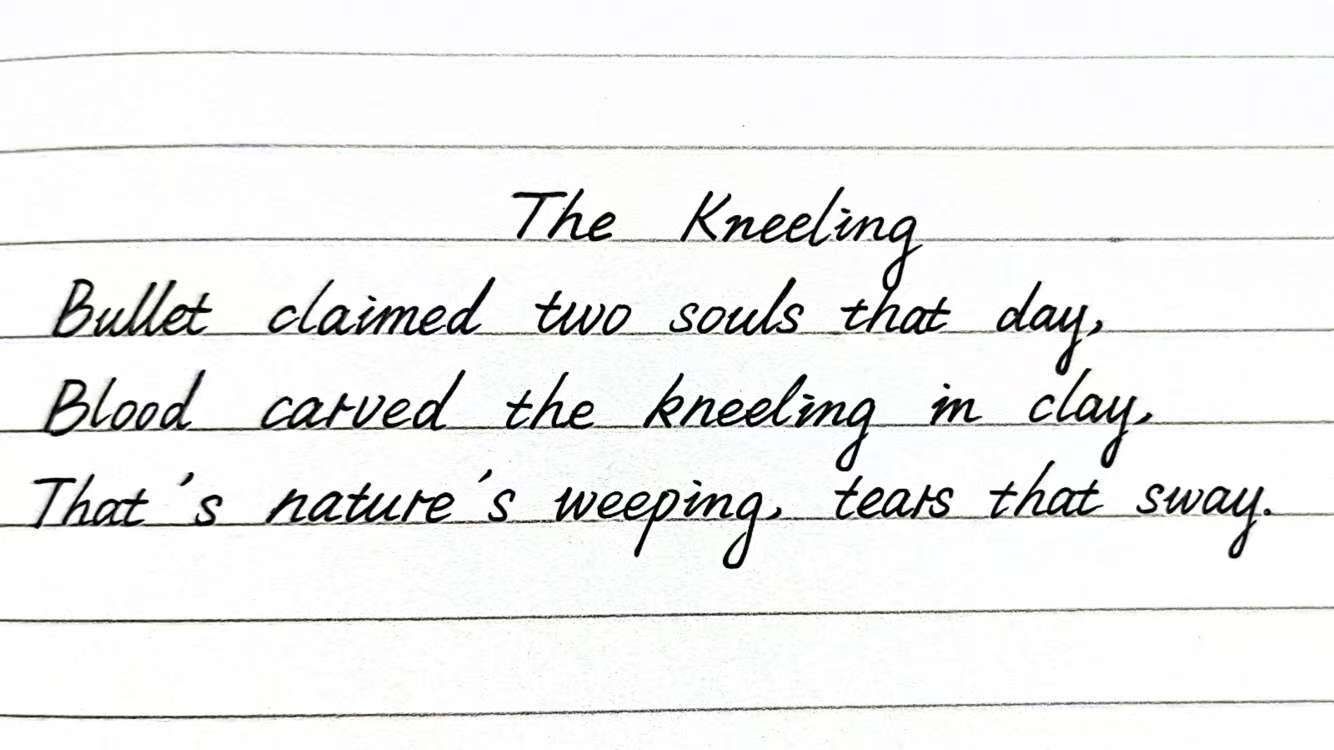 The Kneeling
Bullet claimed two souls that day,
Blood carved the kneeling in clay,
That's nature's weeping, tears that sway.